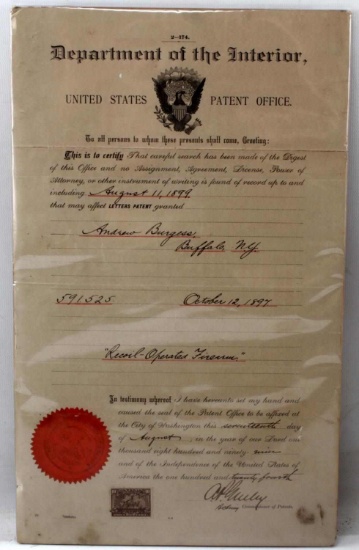 2-474.
Department of the Interior,
UNITED STATES PATENT OFFICE.
To all persons to whom these presents shall come, Greeting:
This is to certify That careful search has been made of the Digest
of this Office and no Assignment, Agreement, License, Power of
Attorney, or other instrument of writing is found of record up to and
including August 11, 1899,
that may affect LETTERS PATENT granted
Andrew Burgess,
Buffalo, N.Y.
591525 October 12, 1897
"Recoil-Operated Firearm"
In testimony whereof I have hereunto set my hand and
caused the seal of the Patent Office to be affixed at
the City of Washington this seventeenth day
of August, in the year of our Lord one
thousand eight hundred and ninety-nine
and of the Independence of the United States of
America the one hundred and twenty fourth.
Commissioner of Patents.